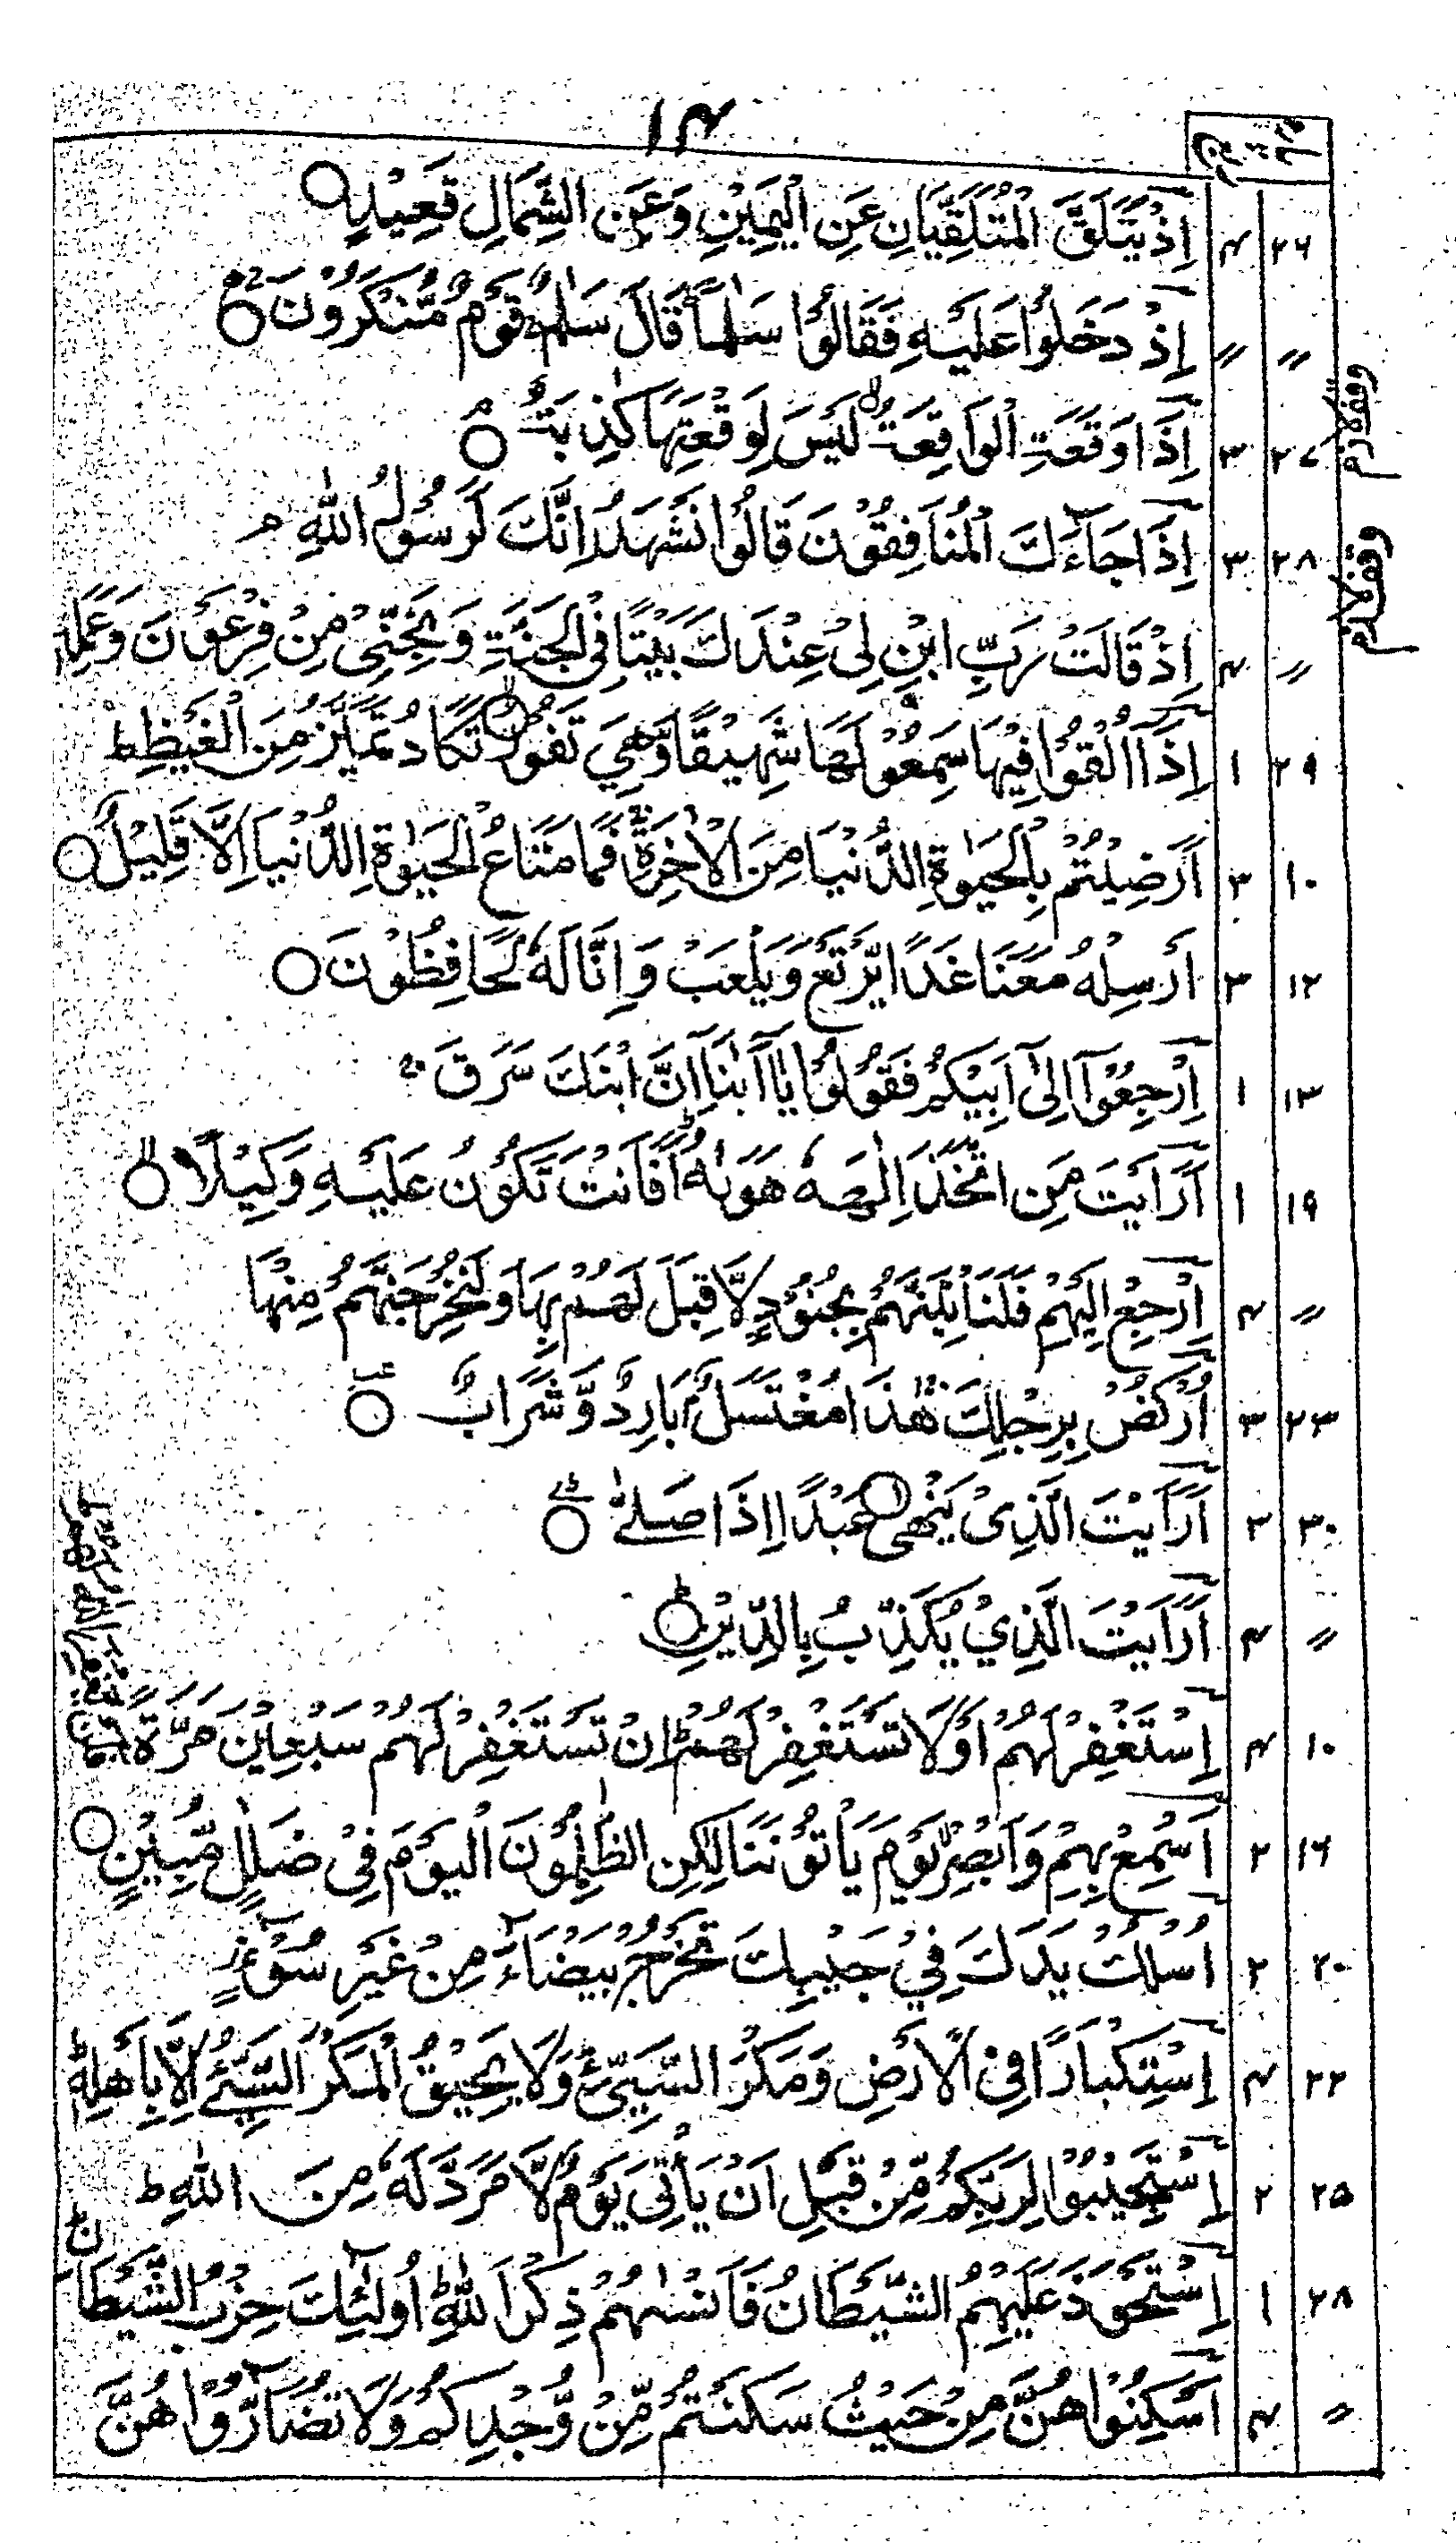 ۱۴
۲۶ ۴ اِذْ يَتَلَقَّى الْمُتَلَقِّيَانِ عَنِ الْيَمِيْنِ وَعَنِ الشِّمَالِ قَعِيْدٌ
〃 〃 اِذْ دَخَلُوْا عَلَيْهِ فَقَالُوْا سَلٰمًا قَالَ سَلٰمٌ قَوْمٌ مُّنْكَرُوْنَ
۲۷ ۳ اِذَا وَقَعَتِ الْوَاقِعَةُ لَيْسَ لِوَقْعَتِهَا كَاذِبَةٌ
۲۸ ۳ اِذَا جَآءَكَ الْمُنَافِقُوْنَ قَالُوْا نَشْهَدُ اِنَّكَ لَرَسُوْلُ اللّٰهِ م
〃 ۴ اِذْ قَالَتْ رَبِّ ابْنِ لِىْ عِنْدَكَ بَيْتًا فِى الْجَنَّةِ وَنَجِّنِىْ مِنْ فِرْعَوْنَ وَعَمَلِهٖ
۲۹ ۱ اِذَآ اُلْقُوْا فِيْهَا سَمِعُوْا لَهَا شَهِيْقًا وَّهِىَ تَفُوْرُ تَكَادُ تَمَيَّزُ مِنَ الْغَيْظِ ط
۱۰ ۳ اَرَضِيْتُمْ بِالْحَيٰوةِ الدُّنْيَا مِنَ الْاٰخِرَةِ فَمَا مَتَاعُ الْحَيٰوةِ الدُّنْيَا اِلَّا قَلِيْلٌ
۱۲ ۳ اَرْسِلْهُ مَعَنَا غَدًا يَّرْتَعْ وَيَلْعَبْ وَاِنَّا لَهٗ لَحَافِظُوْنَ
۱۳ ۱ اِرْجِعُوْٓا اِلٰٓى اَبِيْكُمْ فَقُوْلُوْا يٰٓا اَبَانَآ اِنَّ ابْنَكَ سَرَقَ
۱۹ ۱ اَرَاَيْتَ مَنِ اتَّخَذَ اِلٰهَهٗ هَوٰىهُ اَفَاَنْتَ تَكُوْنُ عَلَيْهِ وَكِيْلًا
〃 ۴ اِرْجِعْ اِلَيْهِمْ فَلَنَاْتِيَنَّهُمْ بِجُنُوْدٍ لَّا قِبَلَ لَهُمْ بِهَا وَلَنُخْرِجَنَّهُمْ مِنْهَا
۲۳ ۳ اُرْكُضْ بِرِجْلِكَ هٰذَا مُغْتَسَلٌ بَارِدٌ وَّشَرَابٌ
۳۰ ۳ اَرَاَيْتَ الَّذِىْ يَنْهٰى عَبْدًا اِذَا صَلّٰى
〃 ۴ اَرَاَيْتَ الَّذِىْ يُكَذِّبُ بِالدِّيْنِ
۱۰ ۴ اِسْتَغْفِرْ لَهُمْ اَوْ لَا تَسْتَغْفِرْ لَهُمْ اِنْ تَسْتَغْفِرْ لَهُمْ سَبْعِيْنَ مَرَّةً
۱۶ ۲ اَسْمِعْ بِهِمْ وَاَبْصِرْ يَوْمَ يَاْتُوْنَنَا لٰكِنِ الظّٰلِمُوْنَ الْيَوْمَ فِىْ ضَلٰلٍ مُّبِيْنٍ
۲۰ ۲ اُسْلُكْ يَدَكَ فِىْ جَيْبِكَ تَخْرُجْ بَيْضَآءَ مِنْ غَيْرِ سُوْٓءٍ
۲۲ ۴ اِسْتِكْبَارًا فِى الْاَرْضِ وَمَكْرَ السَّيِّئِ وَلَا يَحِيْقُ الْمَكْرُ السَّيِّئُ اِلَّا بِاَهْلِهٖ
۲۵ ۲ اِسْتَجِيْبُوْا لِرَبِّكُمْ مِّنْ قَبْلِ اَنْ يَاْتِىَ يَوْمٌ لَّا مَرَدَّ لَهٗ مِنَ اللّٰهِ ط
۲۸ ۱ اِسْتَحْوَذَ عَلَيْهِمُ الشَّيْطَانُ فَاَنْسٰىهُمْ ذِكْرَ اللّٰهِ اُولٰٓئِكَ حِزْبُ الشَّيْطَانِ
〃 ۴ اَسْكِنُوْاهُنَّ مِنْ حَيْثُ سَكَنْتُمْ مِّنْ وُّجْدِكُمْ وَلَا تُضَآرُّوْاهُنَّ
وقف لازم
وقف لازم